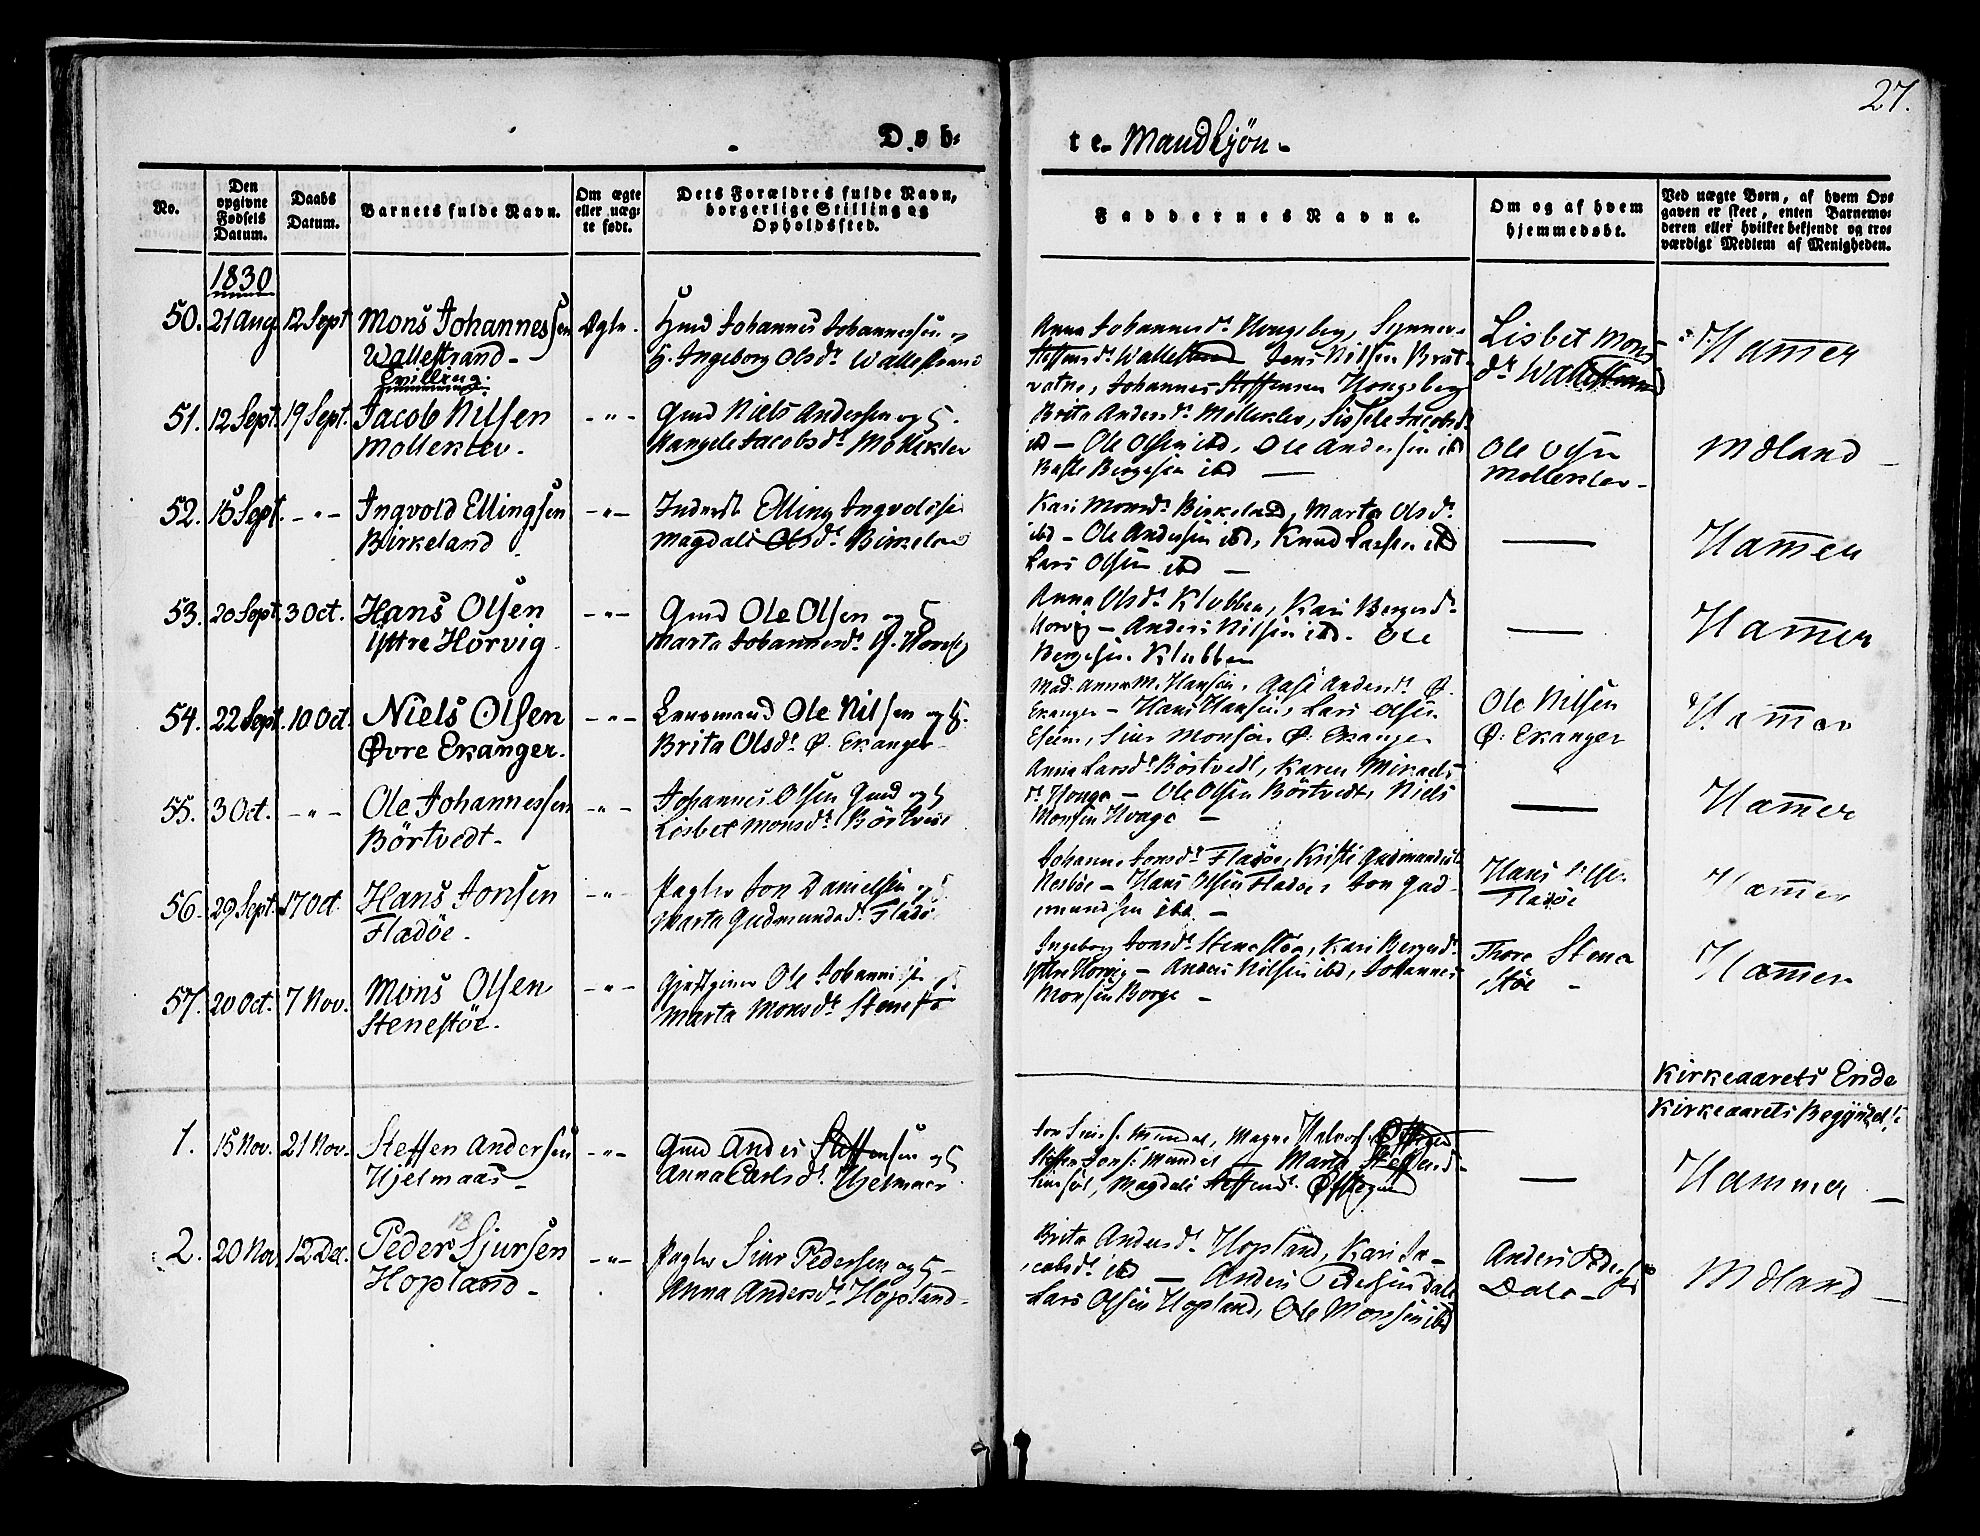 27.
Døb-
te- Mandkjön-
No.
Den opgivne Fødsels Datum.
Daabs Datum.
Barnets fulde Navn.
Om ægte eller uægte født.
Dets Forældres fulde Navn, borgerlige Stilling og Opholdssted.
Faddernes Navne.
Om og af hvem hjemmedøbt.
Ved uægte Børn, af hvem Opgaven er skeet, enten Barnemoderen eller hvilket bekjendt og troværdigt Medlem af Menigheden.
1830
50. 21 Aug 12 Sept Mons Johannessen Ægte. Gmd Johannes Johannessen og
Wallestrand- H. Ingeborg Olsdr Wallestrand
Tvilling.
Anna Johannesdr Hongeberg, Synner-
Steffensdr Wallestrand Jens Nilsen Brat-
vatne, Johannes Steffensen Hongeberg
Lisbet Mons
dr Wallestrand
Hamer
51. 12 Sept. 19 Sept. Jacob Nilsen -"- Gmd Niels Andersen og H.
Mölleklev. Jacobsdr Mölleklev
Brita Andersdr Mölleklev, Sissele Jacobsdr
ibd - Ole Olsen ibd, Ole Andersen ibd
Baste Bergesen ibd -
Ole Olsen
Mölleklev-
Mdland -
52. 18 Sept. -"- Ingvold Ellingsen -"- Inderst Elling Ingvoldsen
Birkeland Magdali Olsdr Birkeland
Kari Monsdr Birkeland, Marta Olsdr
ibd - Ole Andersen ibd, Knud Larsen ibd
Lars Olsen ibd -
Hamer
53. 20 Sept. 3 Oct. Hans Olsen -"- Gmd Ole Olsen og H
Yttre Horvig Marta Johannesdr Y. Horvig
Anna Olsdr Klubben, Kari Bergesdr
Horvig - Anders Nilsen ibd. Ole
Bergesen Klubben
Hamer
54. 22 Sept. 10 Oct Niels Olsen -"- Lensmand Ole Nilsen og H.
Øvre Ekanger. Brita Olsdr Ø. Ekanger-
Mad. Anna M. Hansen, Aase Andersdr Ø.
Ekanger - Hans Hansen, Lars Olsen
Sjur Monsen Ø. Ekanger
Ole Nilsen
Ø: Ekanger
Hamer
55. 3 Oct. -"- Ole Johannessen -"- Johannes Olsen Gmd og H
Börtvedt- Lisbet Monsdr Börtvedt
Anna Larsdr Börtvedt, Karen Mikaels
dr Houge - Ole Olsen Börtvedt, Niels
Monsen Hoage -
Hamer
56. 29 Sept. 17 Oct. Hans Jonsen -"- Jon Danielsen og H
Fladöe. Marta Gudmundsdr Fladö
Johanne Jonsdr Fladöe, Kristi Gudmundsdr
Nesböe - Hans Olsen Fladöe, Jon Gud-
mundsen ibd. -
Hans Olsen
Fladöe
Hamer
57. 20 Oct. 7 Nov. Mons Olsen -"- Gjestgiver Ole Johannessen og H
Stenestöe. Marta Monsdr Stenestö
Ingeborg Jonsdr Stenestöe, Kari Bergesdr
Yttre Horvig - Anders Nilsen ibd, Johannes
Monsen Borge -
Thore Stene
stöe -
Hamer
Kirkeaarets Ende
Kirkeaarets Begyndelse
1. 15 Nov. 21 Nov. Steffen Andersen -"- Gmd Anders Steffensen og H
Hjelmaas- Anna Carlsdr Hjelmaas.
Jon Mundal, Magne
Steffen Jons. Mundal - Marta Steffensd-
Magdali Steffensdr.
Hammer -
18
2. 20 Nov 12 Dec. Peder Sjursen -"- Sjur Pedersen og H-
Hopland- Anna Andersdr Hopland-
Brita Andersdr Hopland, Kari Ja-
cobsdr ibd - Anders Pedersen Dale
Lars Olsen Hopland, Ole Monsen ibd
Anders Pedersen
Dale-
Mdland -